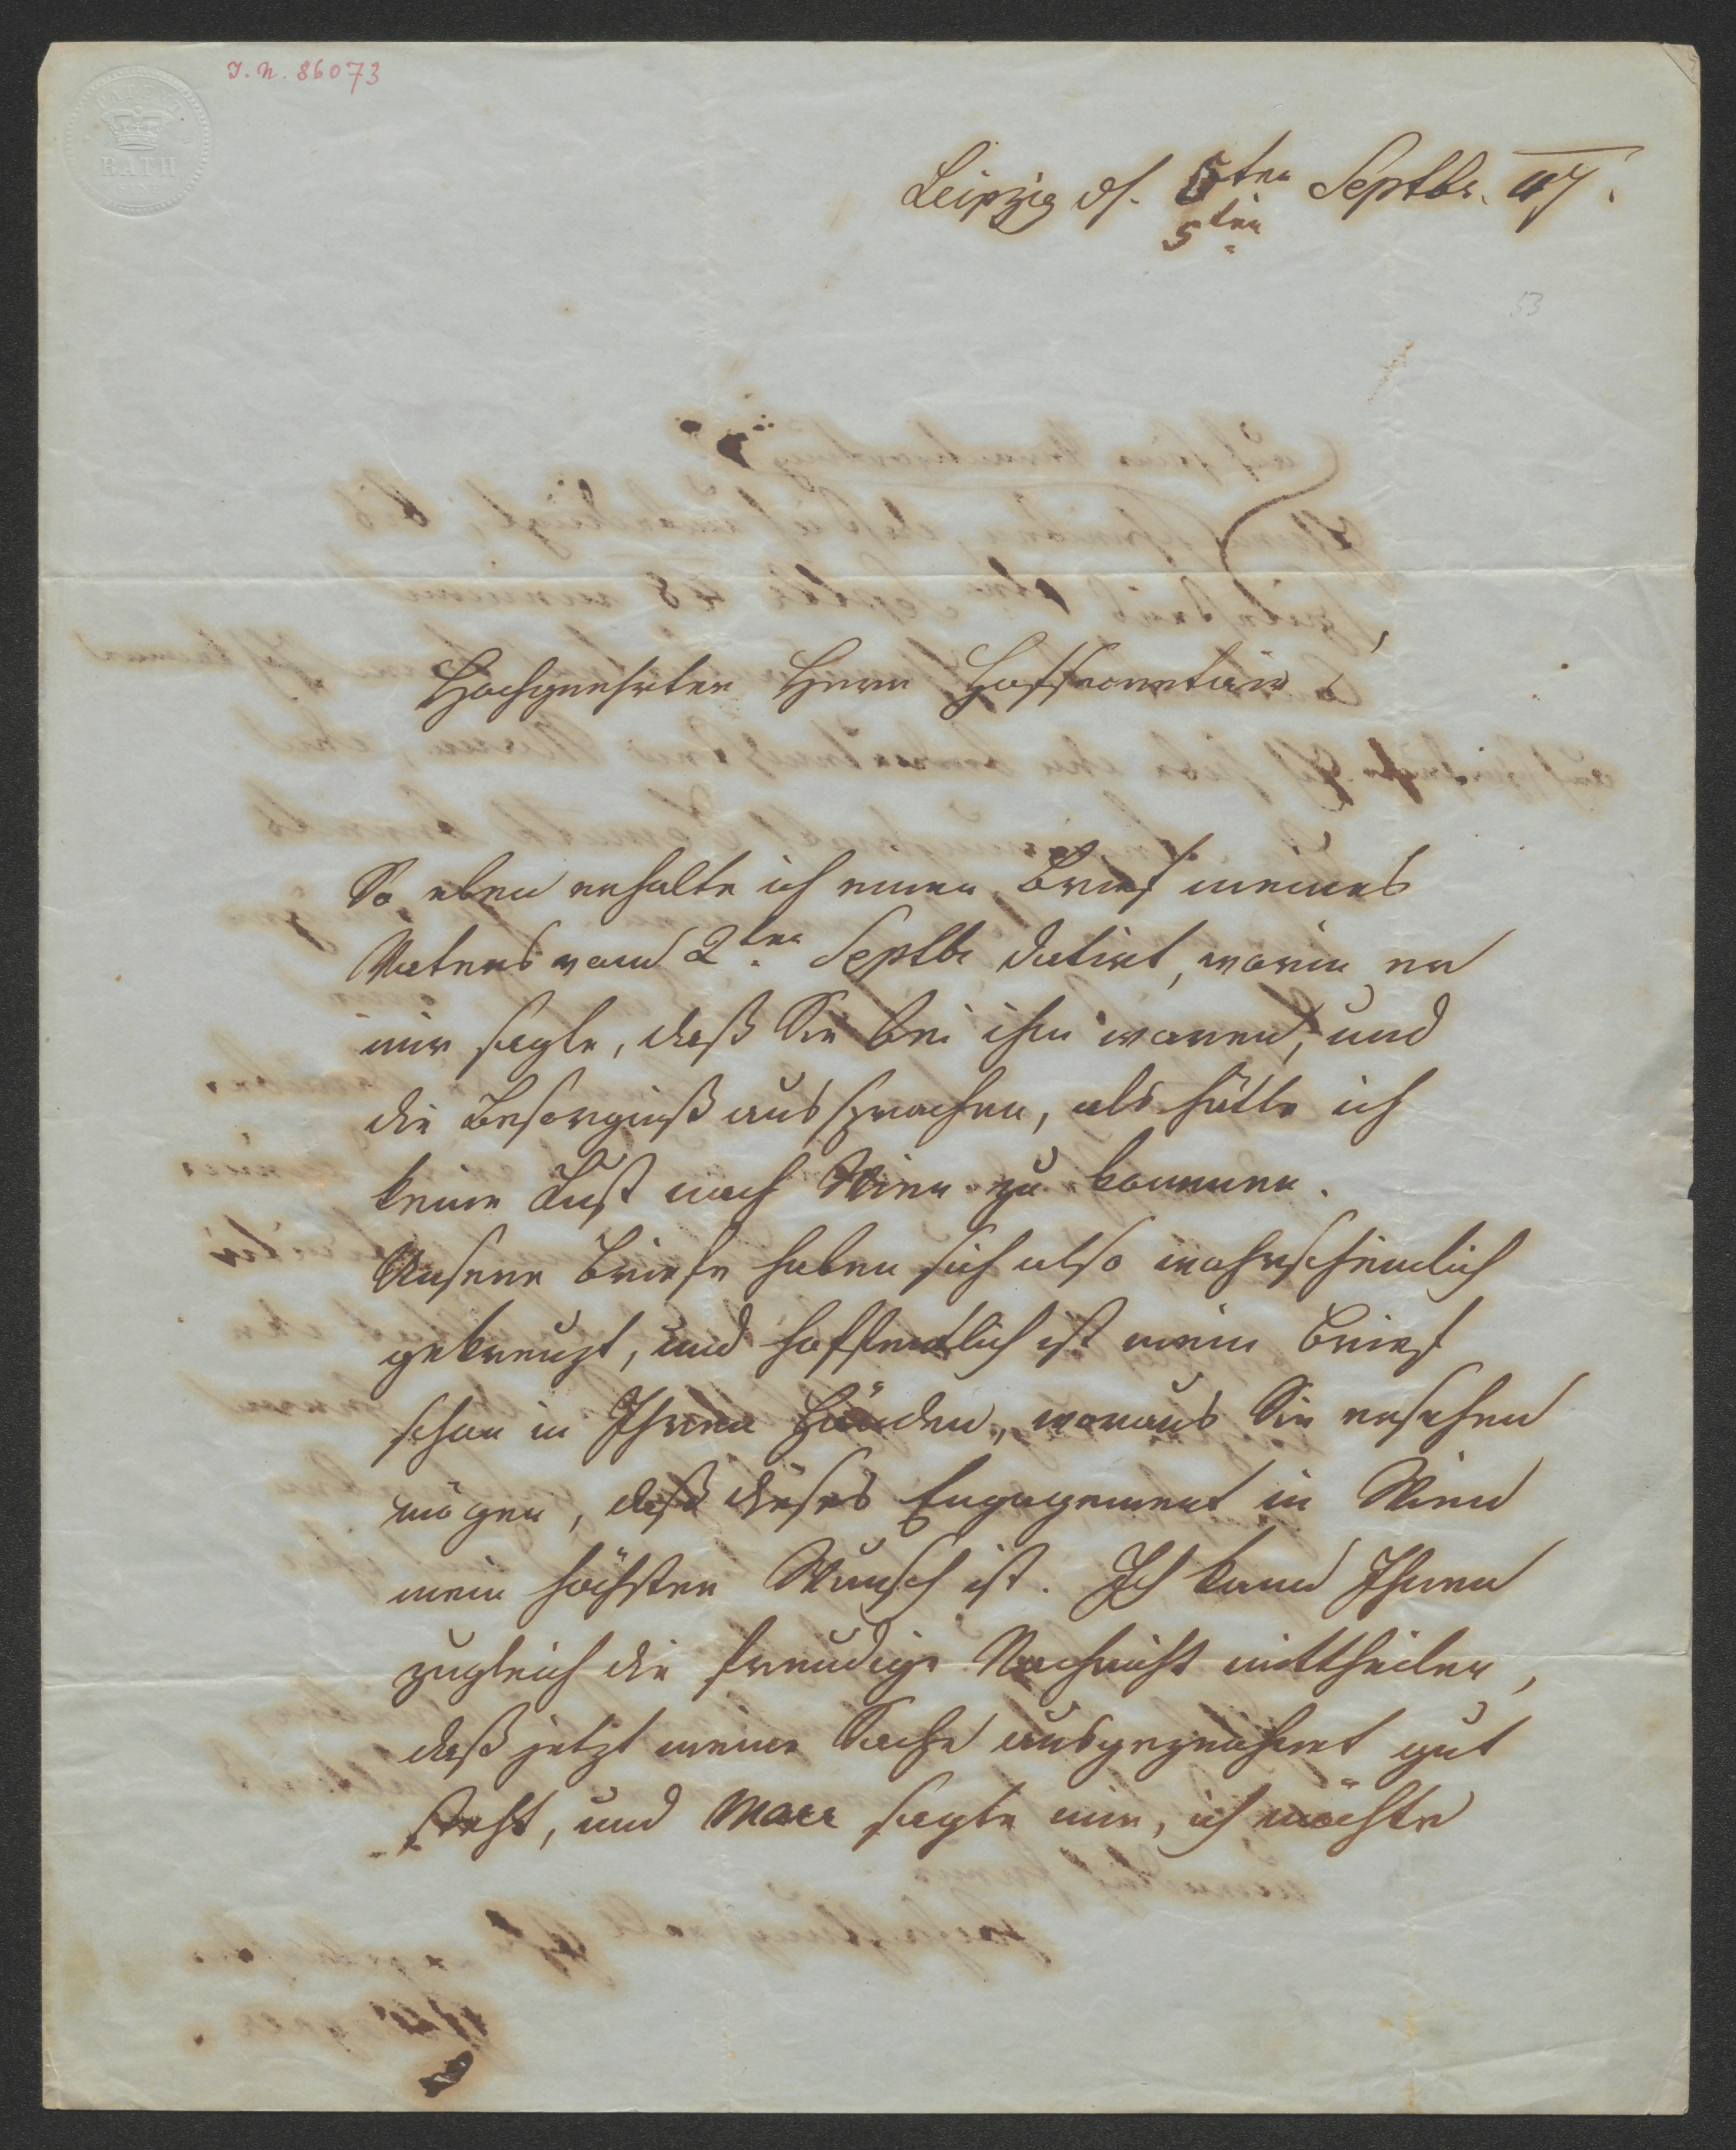 J. N. 86073
PATENT
BATH
Leipzig d. 5ten Septbr. 47.
5ten
53
Hochgeehrter Herr Hofsecretär!
So eben erhalte ich einen Brief meines
Vaters vom 2ten Septbr datirt, worin er
mir sagte, daß Sie bei ihm waren, und
die Besorgniß aussprachen, als hätte ich
keine Lust nach Wien zu kommen.
Unsere Briefe haben sich also wahrscheinlich
gekreuzt, und hoffentlich ist mein Brief
schon in Ihren Händen, woraus Sie ersehen
mögen, daß dieses Engagement in Wien
mein höchster Wunsch ist. Ich kann Ihnen
zugleich die freudige Nachricht mittheilen,
daß jetzt meine Sache ausgezeichnet gut
steht, und Marr sagte mir, ich möchte